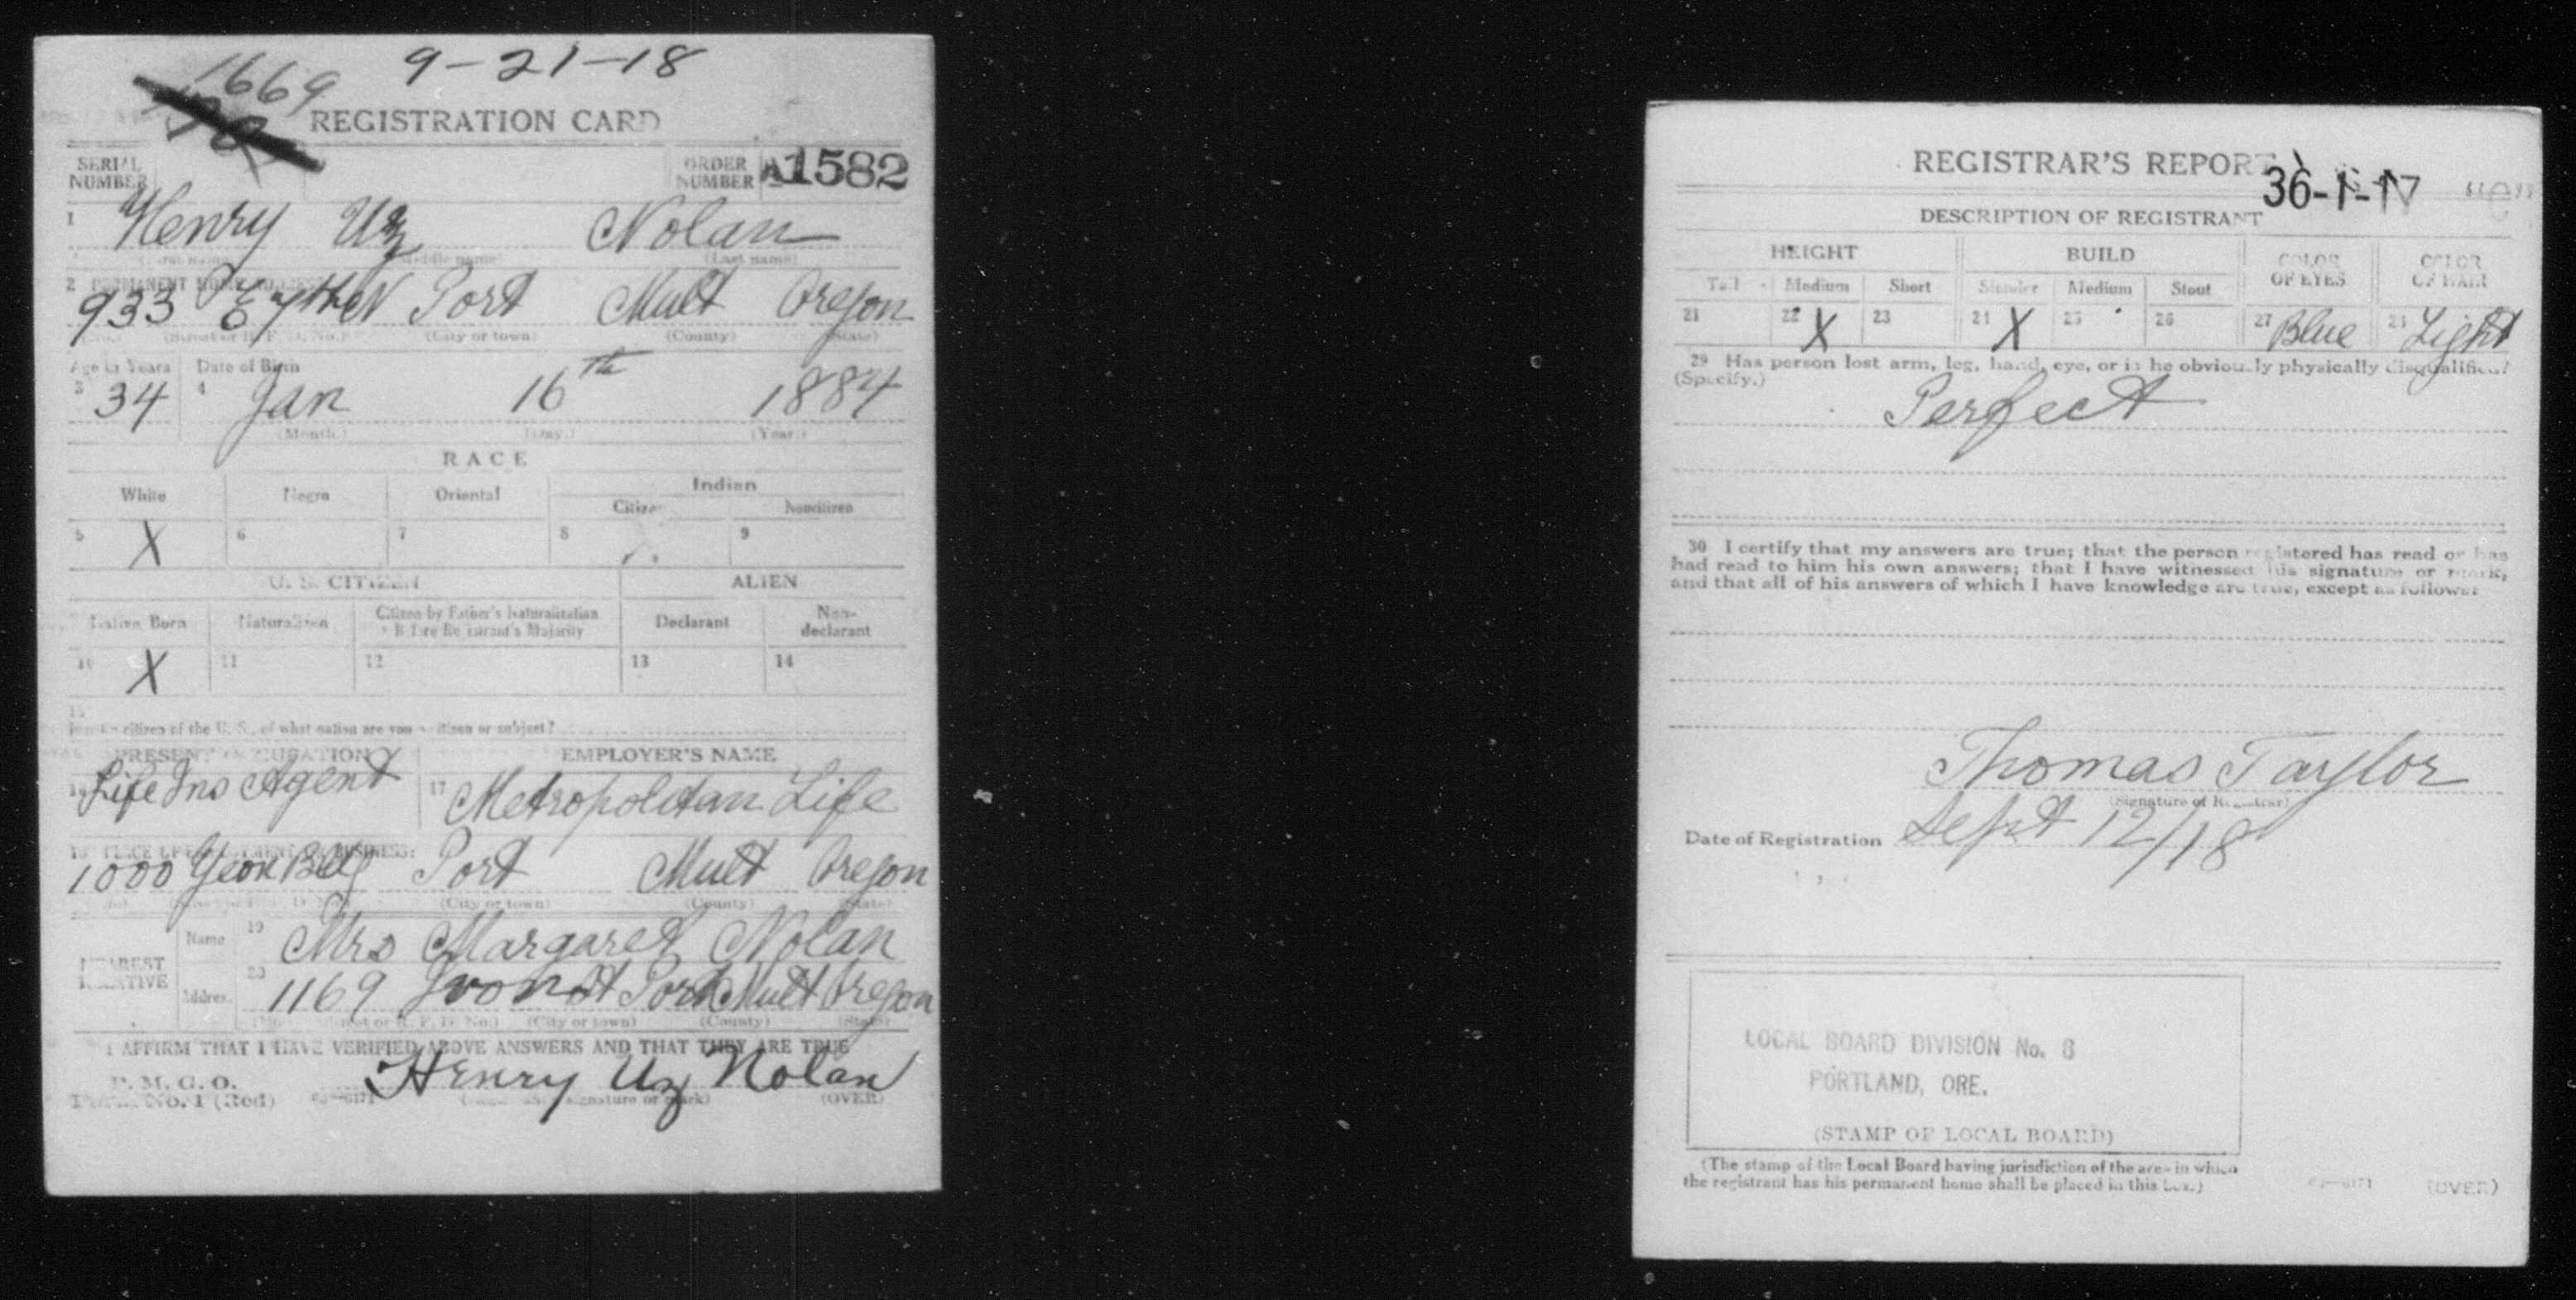 1669 9-21-18
REGISTRATION CARD
SERIAL NUMBER ORDER NUMBER A1582
1 Henry Uz Nolan
(Middle name) (Last name)
2 PERMANENT HOME ADDRESS:
933 E 7th N Port Mult Oregon
(City or town) (County) (State)
Age in Years Date of Birth
3 34 4 Jan 16th 1884
(Month.) (Day.) (Year.)
RACE
White Negro Oriental Indian
Citizen Noncitizen
5 X 6 7 8 9
U. S. CITIZEN ALIEN
Native Born Naturalized Citizen by Father's Naturalization Before Registrant's Majority Declarant Non-declarant
10 X 11 12 13 14
15
citizen of the U. S., of what nation are you a citizen or subject?
PRESENT OCCUPATION EMPLOYER'S NAME
16 Life Ins Agent 17 Metropolitan Life
18 PLACE OF EMPLOYMENT OR BUSINESS:
1000 Yeon Bldg Port Mult Oregon
(City or town) (County) (State)
NEAREST RELATIVE Name 19 Mrs Margaret Nolan
Address 20 1169 Ivon St Port Mult Oregon
(City or town) (County) (State)
I AFFIRM THAT I HAVE VERIFIED ABOVE ANSWERS AND THAT THEY ARE TRUE
P. M. G. O.
Form No. 1 (Red) Henry Uz Nolan
(Registrant's signature or mark) (OVER)
REGISTRAR'S REPORT
36-1-17
DESCRIPTION OF REGISTRANT
HEIGHT BUILD COLOR OF EYES COLOR OF HAIR
Tall Medium Short Slender Medium Stout
21 22 X 23 24 X 25 26 27 Blue 28 Light
29 Has person lost arm, leg, hand, eye, or is he obviously physically disqualified?
(Specify.)
Perfect
30 I certify that my answers are true; that the person registered has read or has
had read to him his own answers; that I have witnessed his signature or mark,
and that all of his answers of which I have knowledge are true, except as follows:
Thomas Taylor
(Signature of Registrar)
Date of Registration Sept 12/18
LOCAL BOARD DIVISION No. 8
PORTLAND, ORE.
(STAMP OF LOCAL BOARD)
(The stamp of the Local Board having jurisdiction of the area in which
the registrant has his permanent home shall be placed in this box.)
03—6171 (OVER)